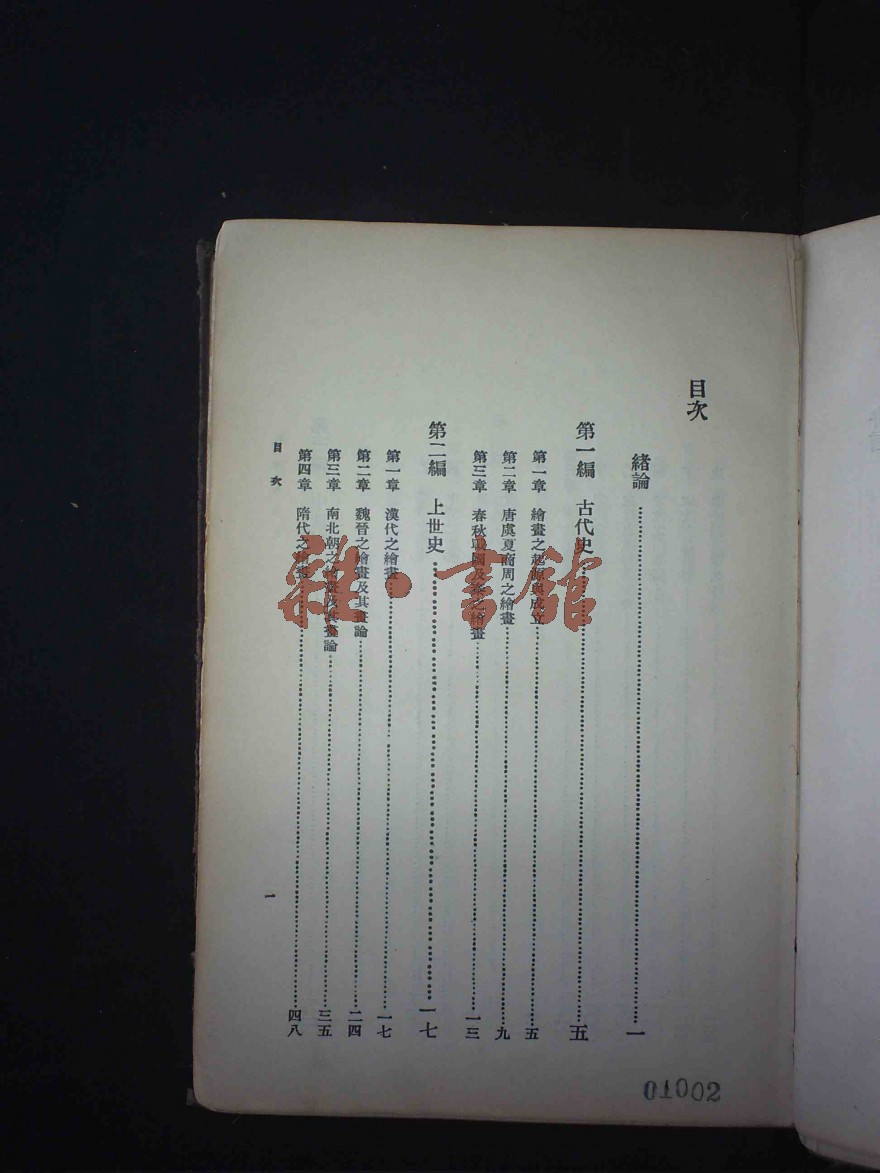 目次
緒論……一
第一編 古代史……五
第一章 繪畫之起源與成立……五
第二章 唐虞夏商周之繪畫……九
第三章 春秋戰國及秦之繪畫……一三
第二編 上世史……一七
第一章 漢代之繪畫……一七
第二章 魏晉之繪畫及其畫論……二四
第三章 南北朝之繪畫及其畫論……三五
第四章 隋代之繪畫……四八
目次
一
01002
雜·書館